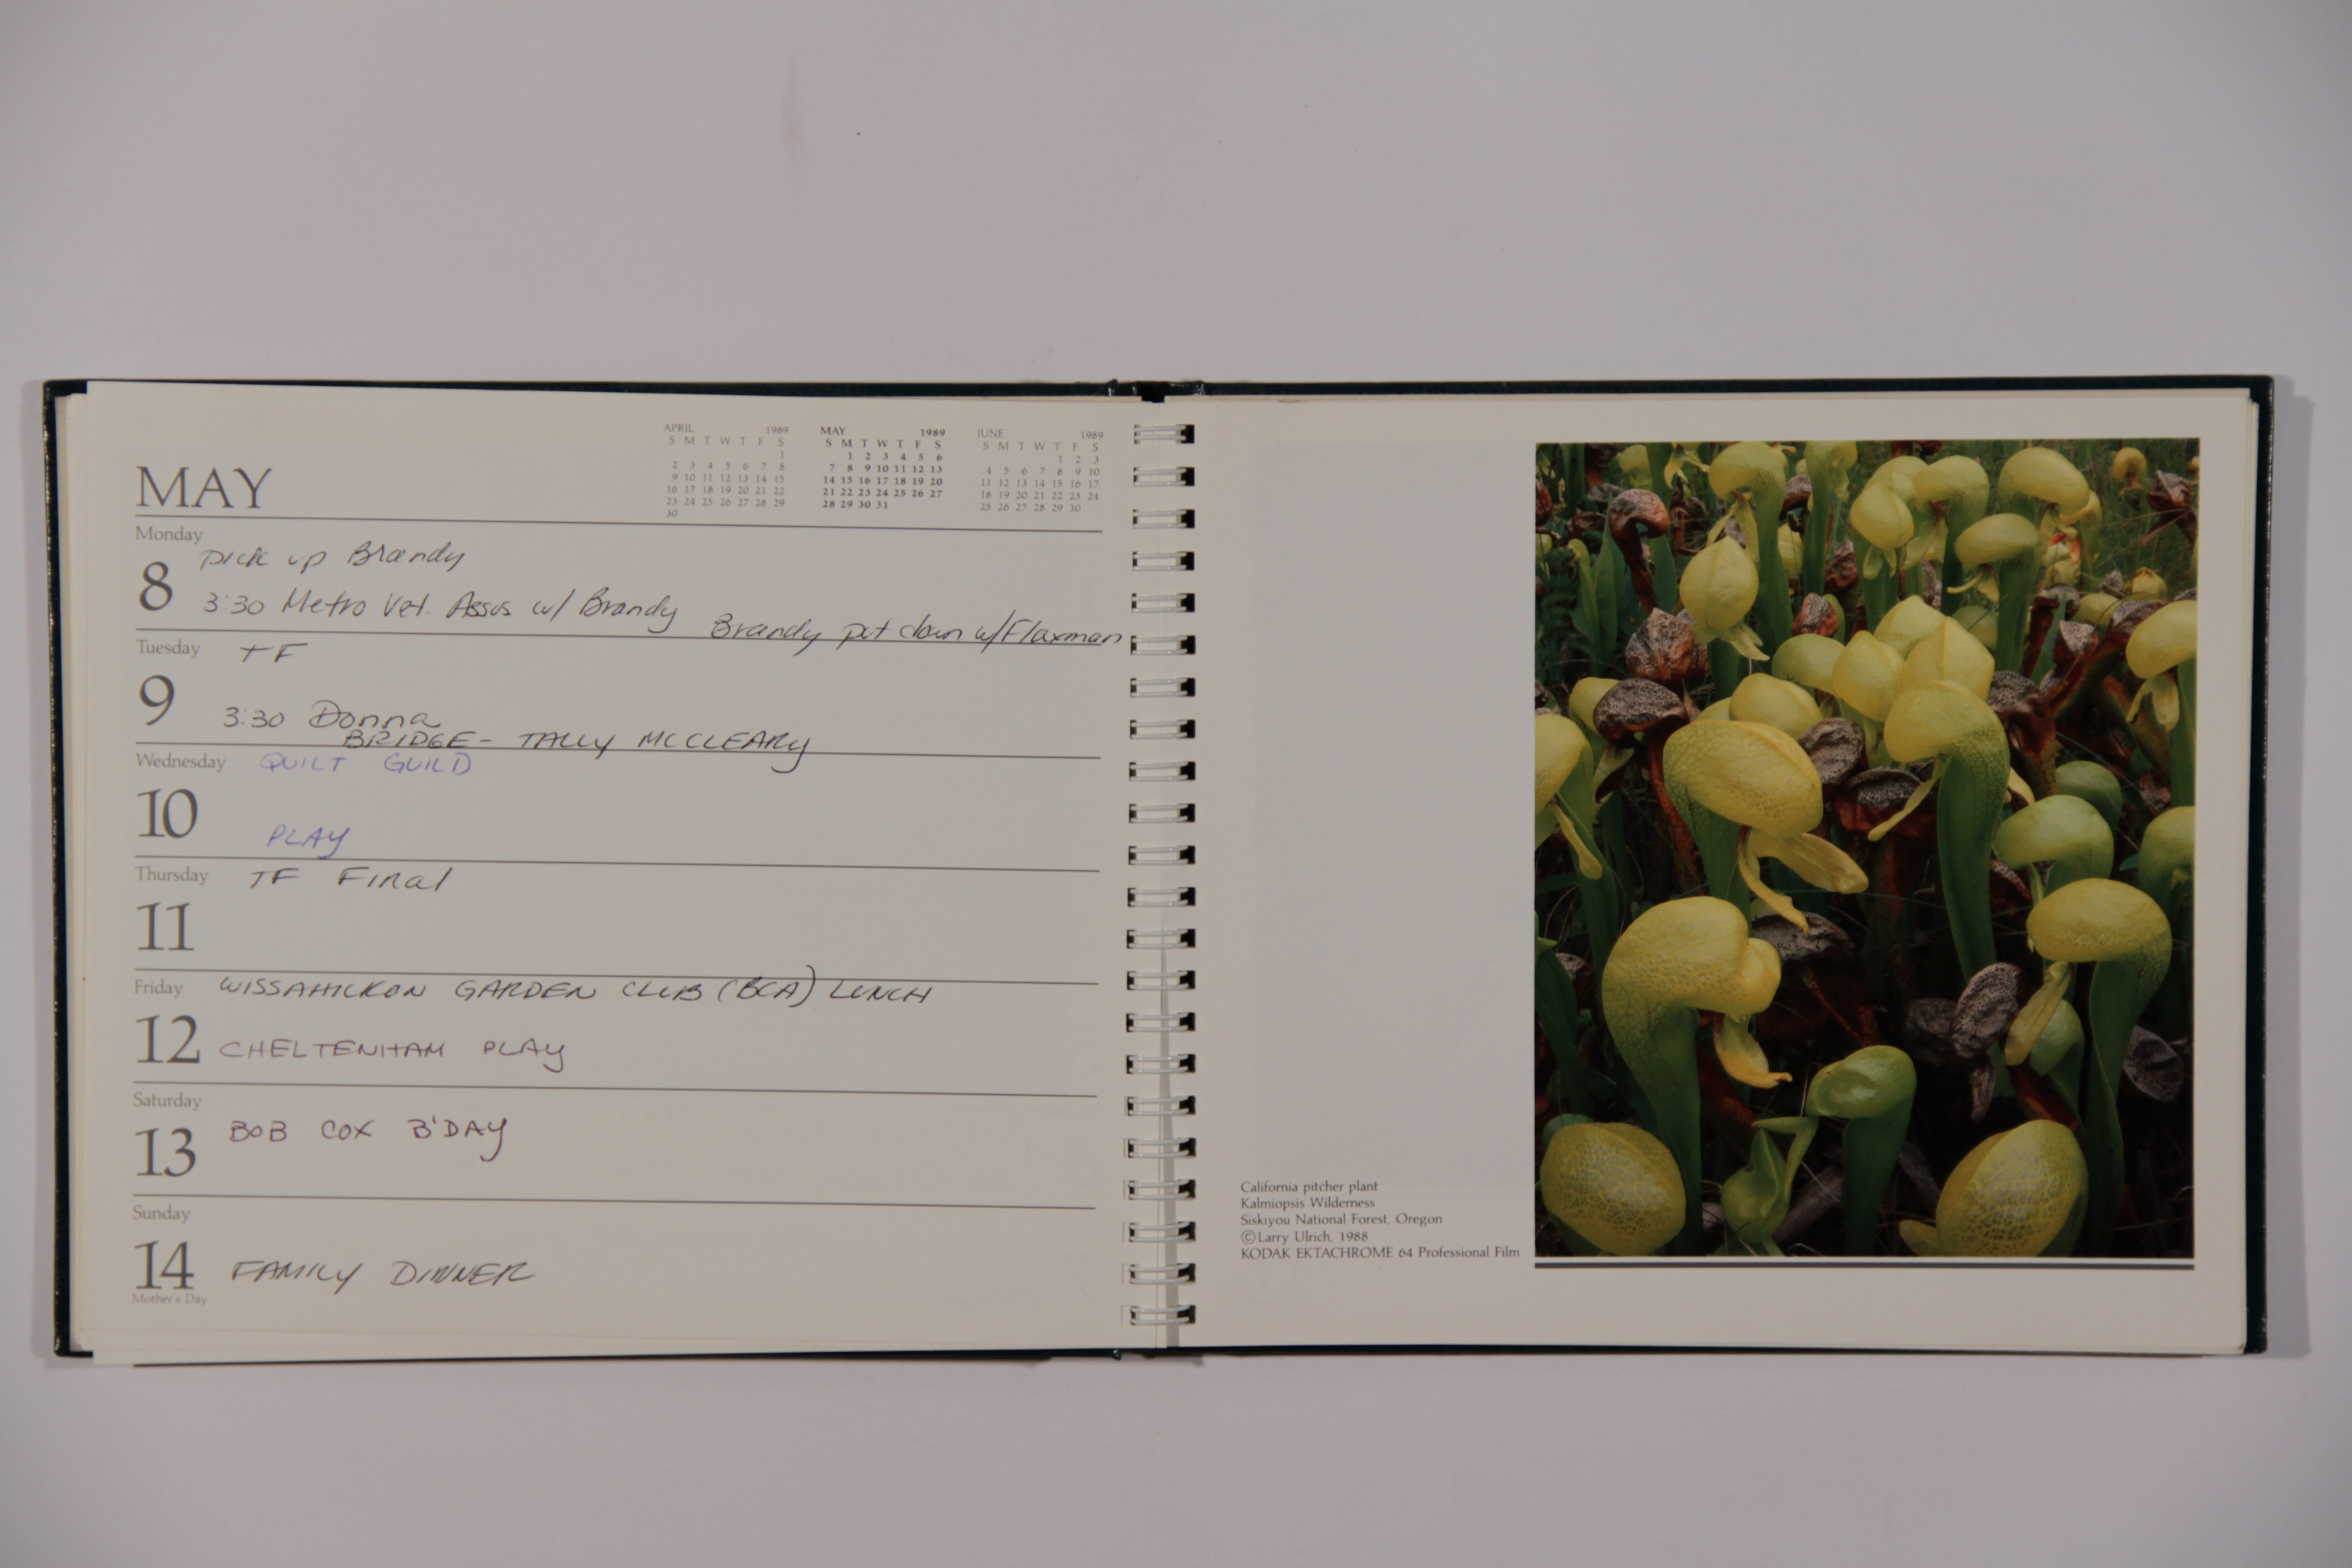 MAY
APRIL 1989
S M T W T F S
1
2 3 4 5 6 7 8
9 10 11 12 13 14 15
16 17 18 19 20 21 22
23 24 25 26 27 28 29
30
MAY 1989
S M T W T F S
1 2 3 4 5 6
7 8 9 10 11 12 13
14 15 16 17 18 19 20
21 22 23 24 25 26 27
28 29 30 31
JUNE 1989
S M T W T F S
1 2 3
4 5 6 7 8 9 10
11 12 13 14 15 16 17
18 19 20 21 22 23 24
25 26 27 28 29 30
Monday
8
pick up Brandy
3:30 Metro Vet. Assos w/ Brandy
Brandy put down w/Flaxman
Tuesday
9
TF
3:30 Donna
BRIDGE - TALLY MCCLEARY
Wednesday
10
QUILT GUILD
PLAY
Thursday
11
TF Final
Friday
12
WISSAHICKON GARDEN CLUB (BCA) LUNCH
CHELTENHAM PLAY
Saturday
13
BOB COX B'DAY
Sunday
14
Mother's Day
FAMILY DINNER
California pitcher plant
Kalmiopsis Wilderness
Siskiyou National Forest, Oregon
©Larry Ulrich, 1988
KODAK EKTACHROME 64 Professional Film